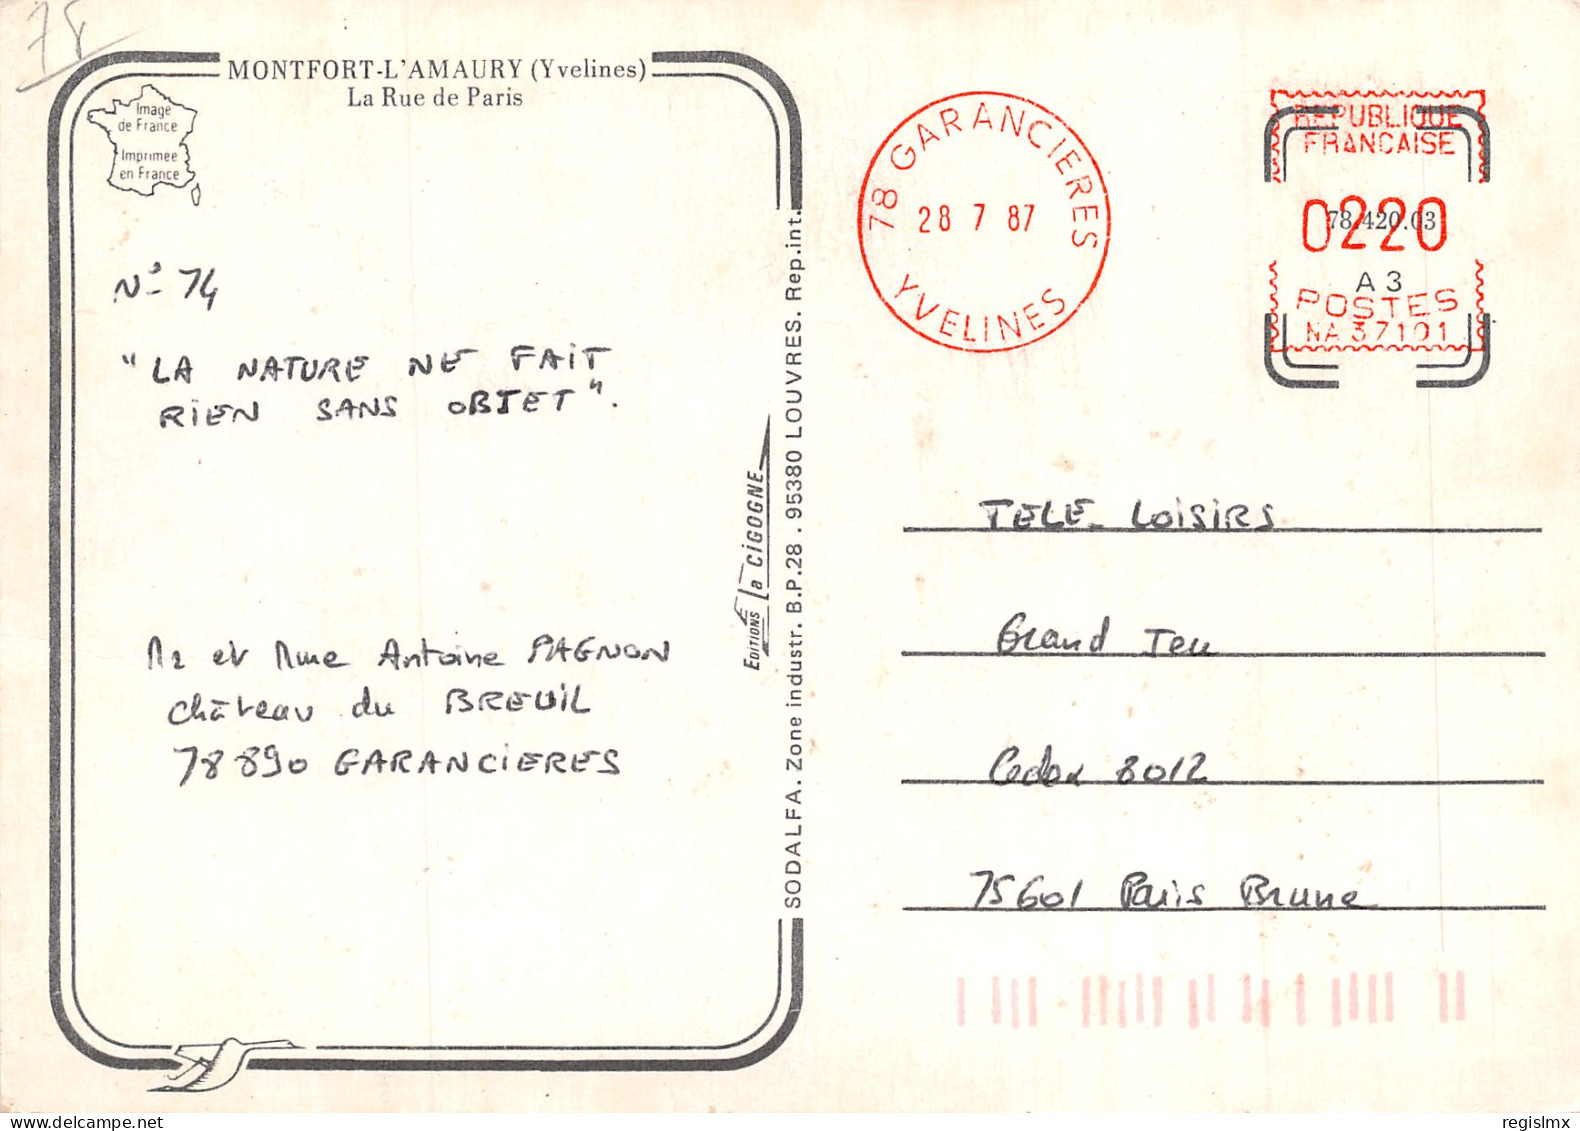 78
MONTFORT-L'AMAURY (Yvelines)
La Rue de Paris
Image
de France
Imprimee
en France
N° 74
"LA NATURE NE FAIT
RIEN SANS OBJET".
Mr et Mme Antoine PAGNON
château du BREUIL
78890 GARANCIERES
EDITIONS La CIGOGNE
SODALFA. Zone industr. B.P.28 . 95380 LOUVRES. Rep.int.
78 GARANCIERES
28 7 87
YVELINES
REPUBLIQUE
FRANCAISE
0220
78.420.03
A 3
POSTES
NA 37101
TELE-LOISIRS
Grand Jeu
Cedex 8012
75601 Paris Brune
regislmx